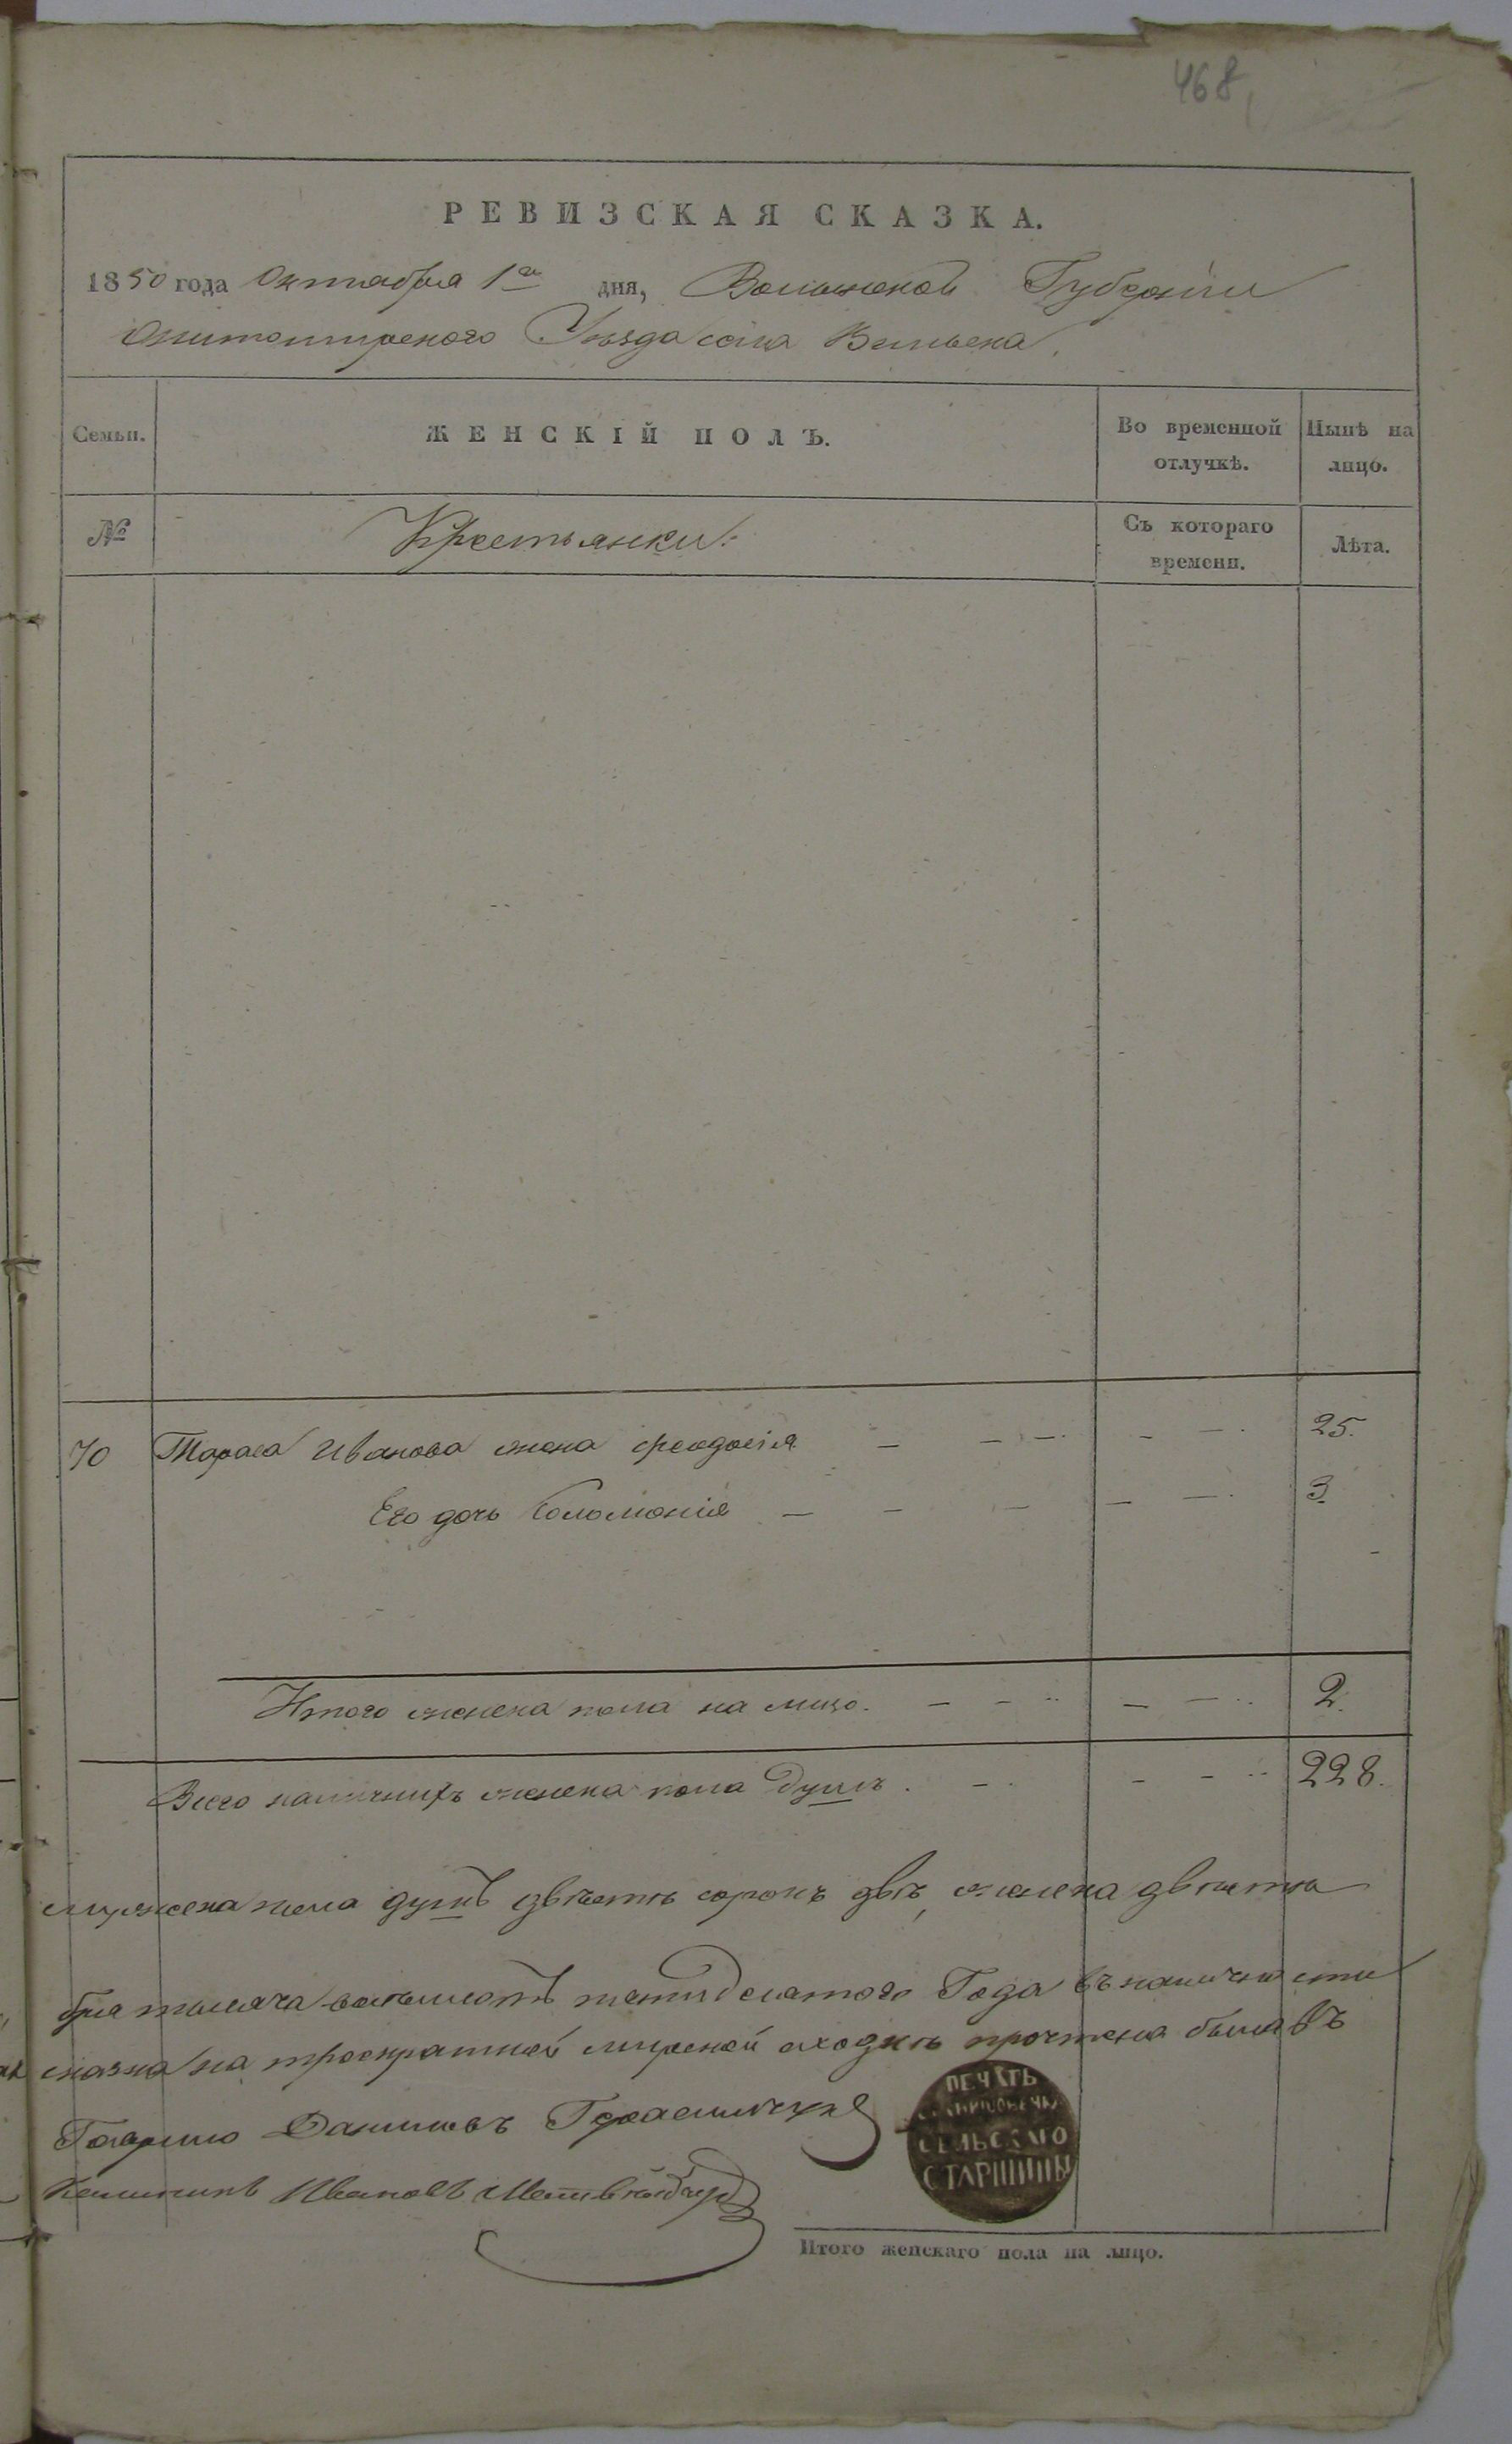 468
РЕВИЗСКАЯ СКАЗКА.
1850 года Октября 1го дня, Волынской Губернии
Житомирского Уѣзда села Вильска
Семьи.
ЖЕНСКІЙ ПОЛЪ.
Во временной отлучкѣ.
Нынѣ на лицо.
№
Крестьянки:
Съ котораго времени.
Лѣта.
70 Тараса Иванова жена Феодосія — — — — — 25.
Его дочь Соломонія — — — — — 3.
Итого женска пола на лицо. — — — — 2.
Всего наличныхъ женска пола душъ. — — — 228.
мужеска пола душъ двѣсти сорокъ двѣ, женска двѣсти
бря тысяча восемьсотъ пятидесятого Года въ наличности
сказка на троекратной мирской сходкѣ прочтена была въ
Даниловъ Герасимчукъ
Ивановъ
ПЕЧАТЬ
СЕЛЬСКАГО
СТАРШИНЫ
Итого женскаго пола на лицо.